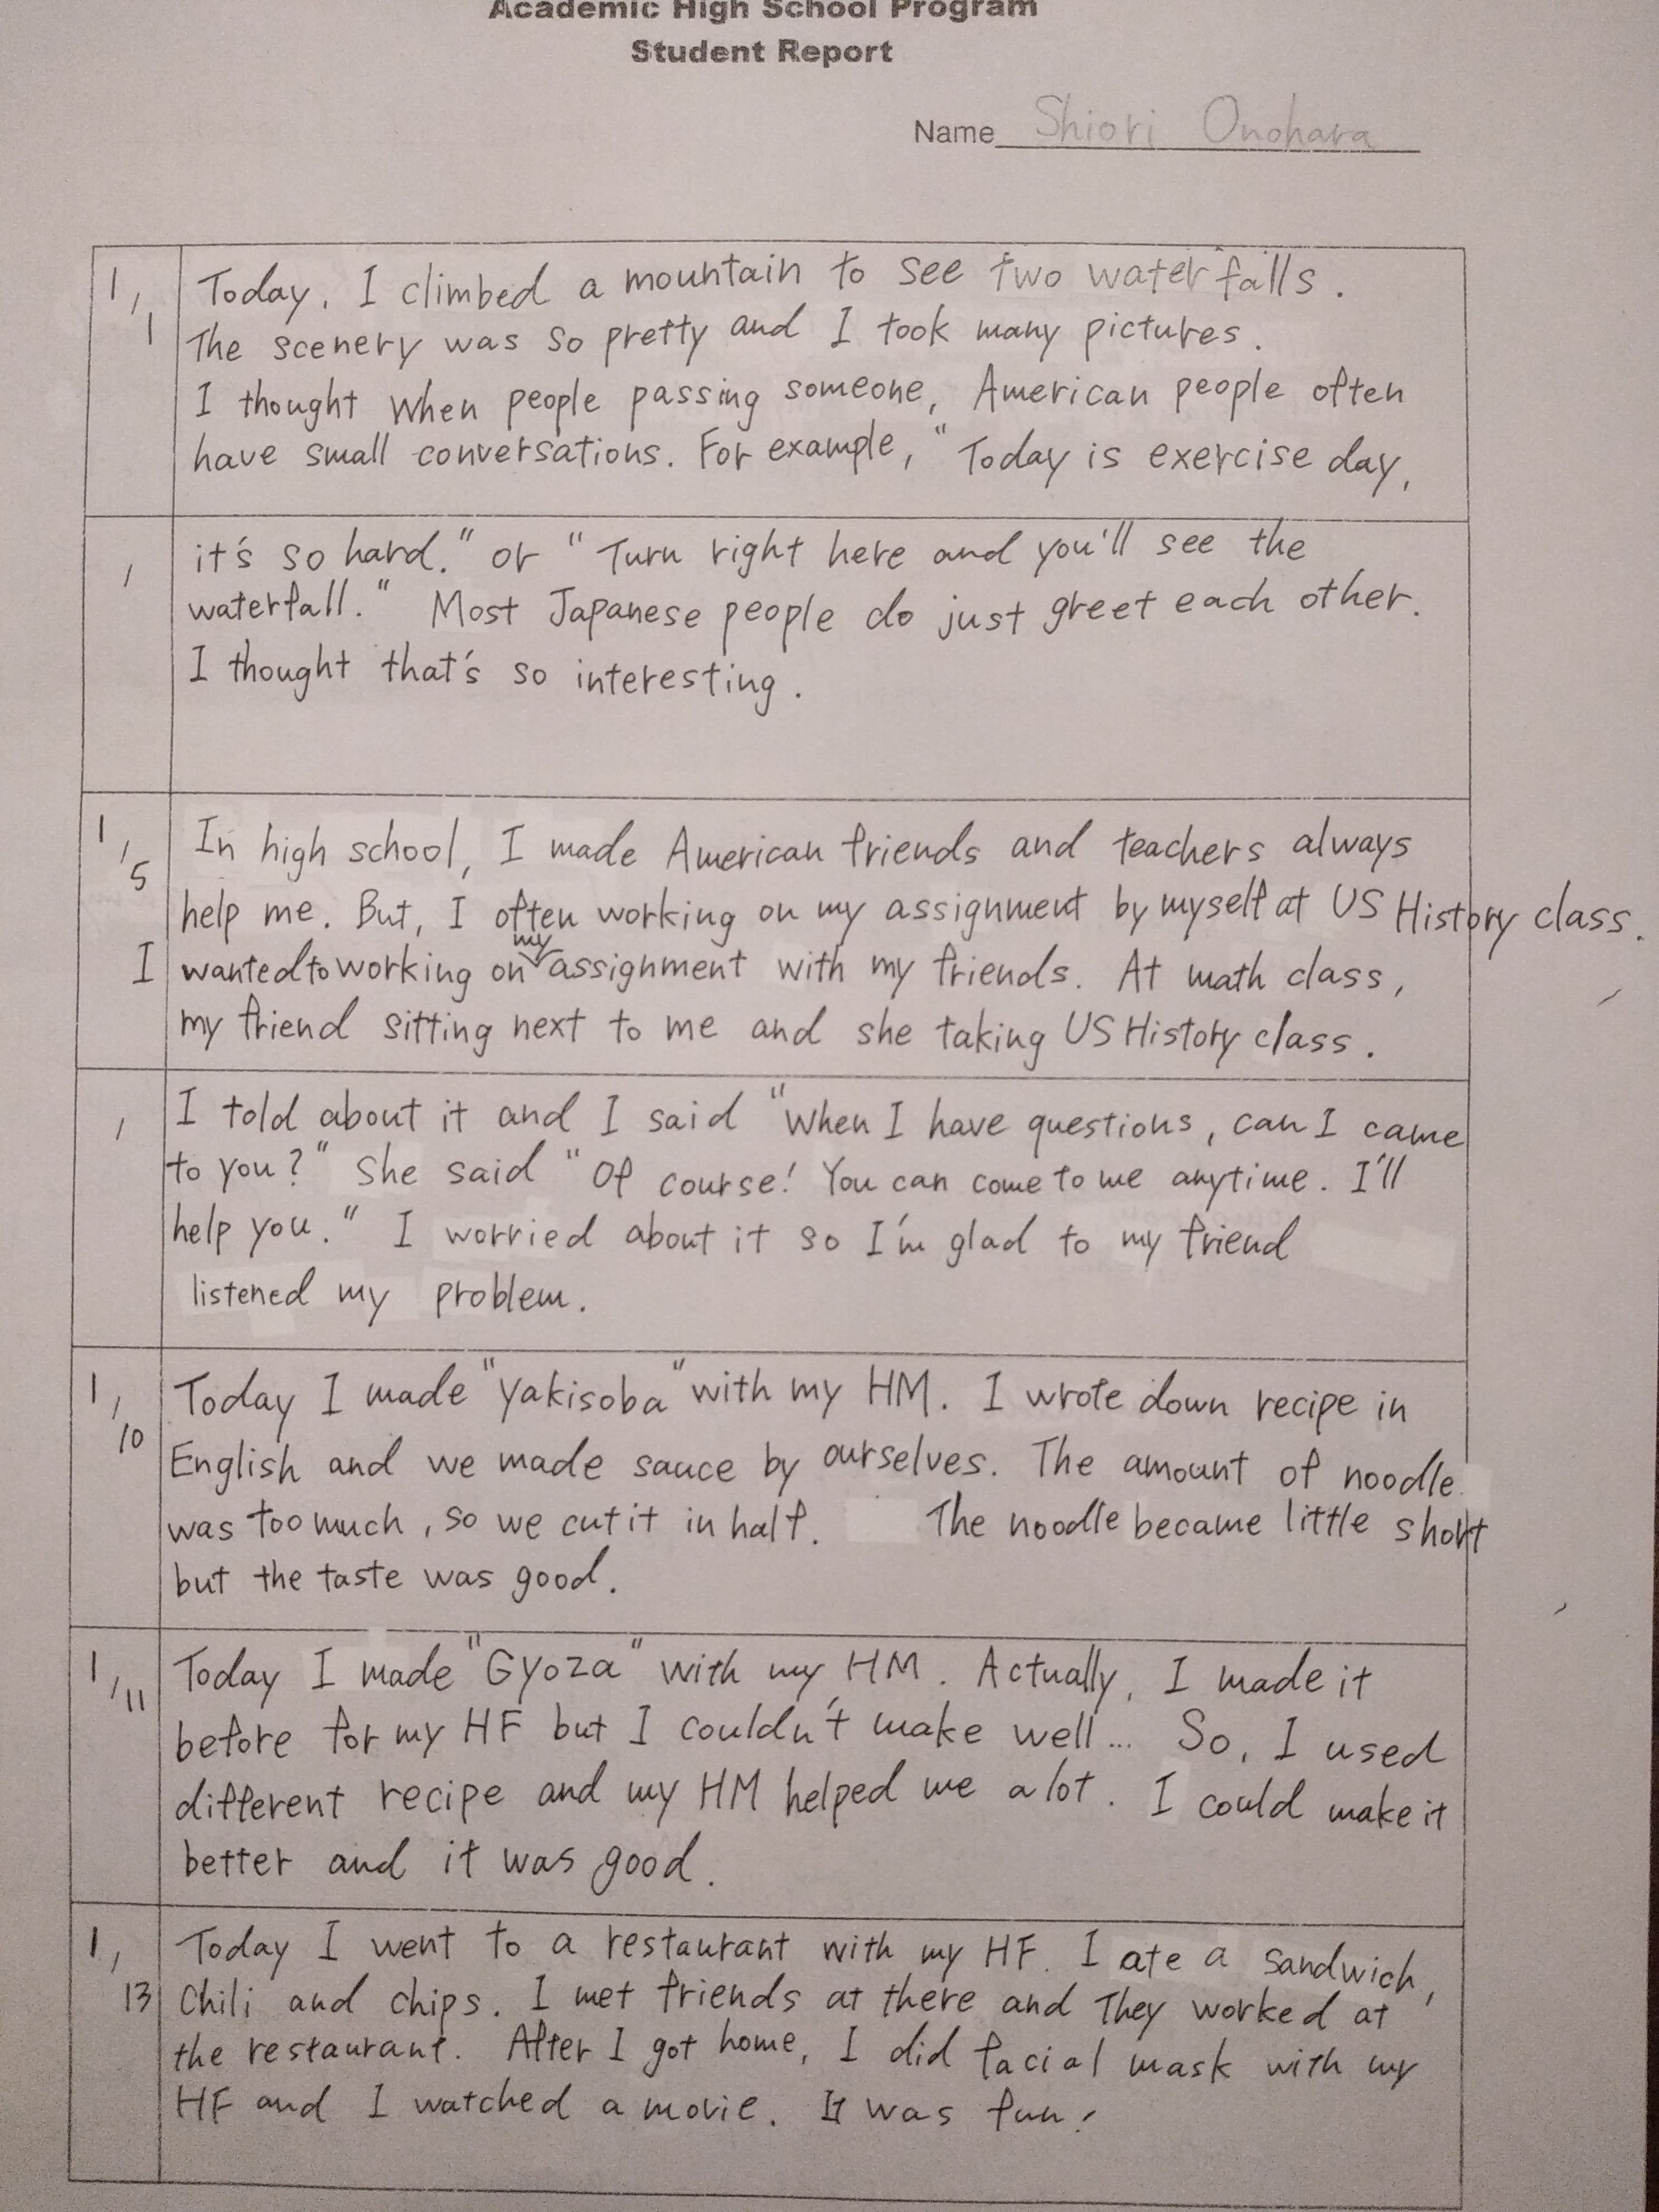 Academic High School Program
Student Report
Name Shiori Onohara
1/1
Today, I climbed a mountain to see two waterfalls.
The scenery was so pretty and I took many pictures.
I thought when people passing someone, American people often
have small conversations. For example, "Today is exercise day,
/
it's so hard." or "Turn right here and you'll see the
waterfall." Most Japanese people do just greet each other.
I thought that's so interesting.
1/5
In high school, I made American friends and teachers always
help me. But, I often working on my assignment by myself at US History class.
I wanted to working on my assignment with my friends. At math class,
my friend sitting next to me and she taking US History class.
/
I told about it and I said "When I have questions, can I came
to you?" She said "Of course! You can come to me anytime. I'll
help you." I worried about it so I'm glad to my friend
listened my problem.
1/10
Today I made "Yakisoba" with my HM. I wrote down recipe in
English and we made sauce by ourselves. The amount of noodle
was too much, so we cut it in half. The noodle became little short
but the taste was good.
1/11
Today I made "Gyoza" with my HM. Actually, I made it
before for my HF but I couldn't make well... So, I used
different recipe and my HM helped me a lot. I could make it
better and it was good.
1/13
Today I went to a restaurant with my HF. I ate a sandwich,
Chili and chips. I met friends at there and They worked at
the restaurant. After I got home, I did facial mask with my
HF and I watched a movie. It was fun!